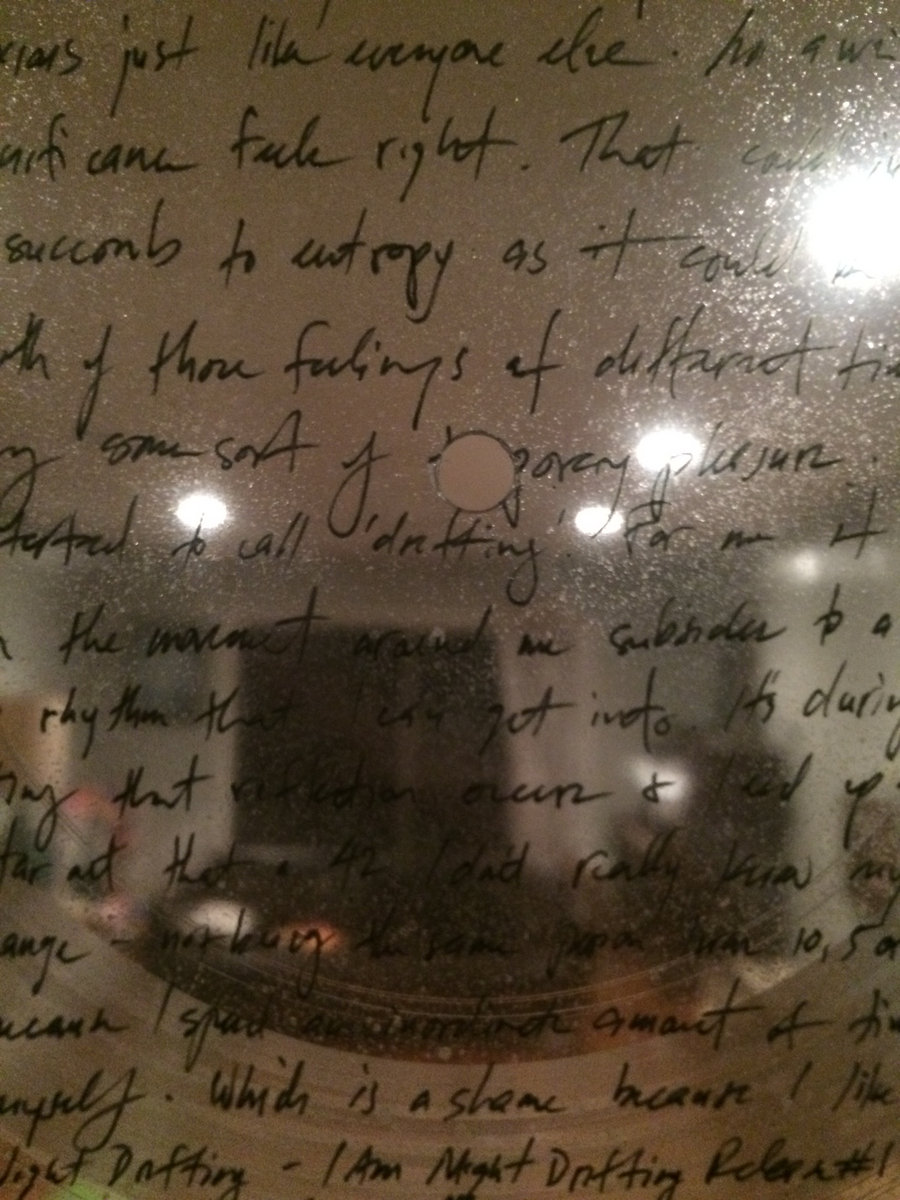 just like everyone else. In a wi
feels right. That could
succomb to entropy as it could
of those feelings at different
some sort of pleasure.
to call 'drifting'. For me it
the movement around me subsides to a
rhythm that I can get into. It's during
that reflection occurs & I end up
that @ 42 I don't really know my
ange - not being the same person now 10, 5 or
I spend an inordinate amount of
myself. Which is a shame because I like
Night Drifting - I Am Night Drifting Release #1